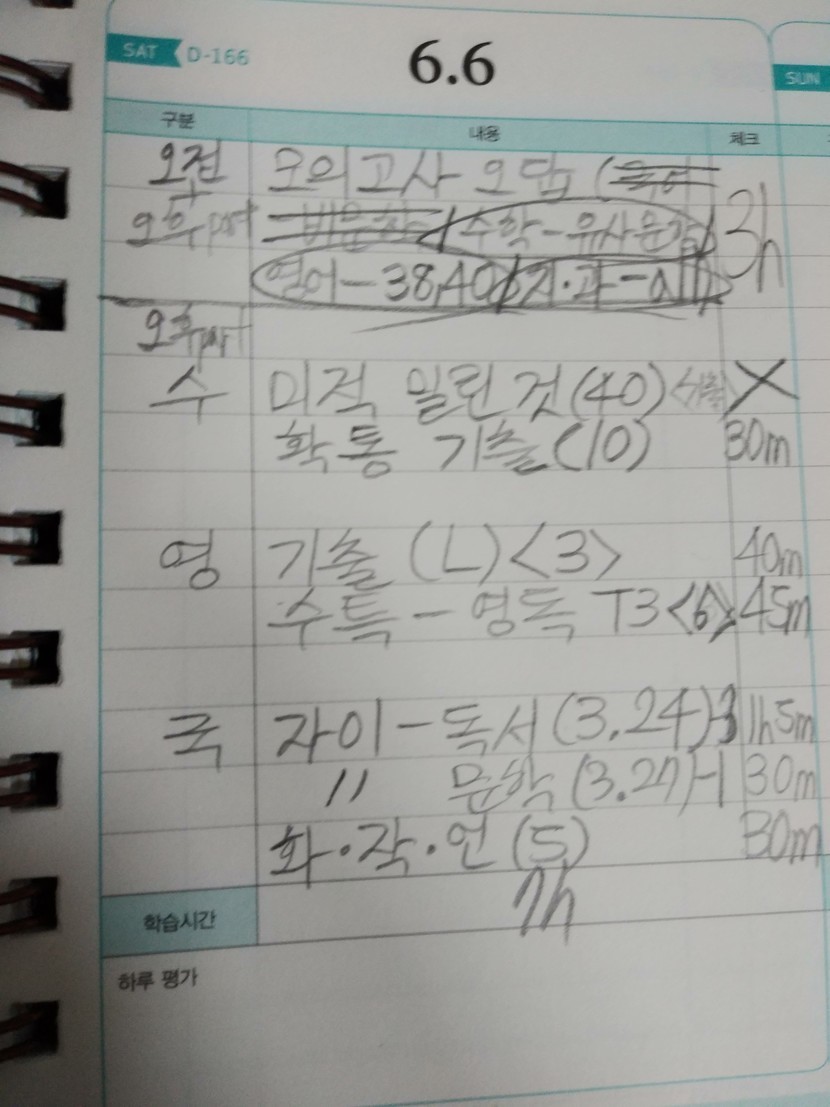 SAT D-166 6.6 SUN
구분 내용 체크
오전 모의고사 오답 (국어
+
오후part 비문학 / 수학-유사문제 3h
영어-38,40 / 지·과-
오후part
수 미적 밀린 것(40) X
확통 기출(10) 30m
영 기출 (L)<3> 40m
수특-영독 T3<6> 45m
국 자이-독서(3.24)-3 1h5m
〃 문학(3.27)-1 30m
화·작·언(5) 30m
학습시간 7h
하루 평가